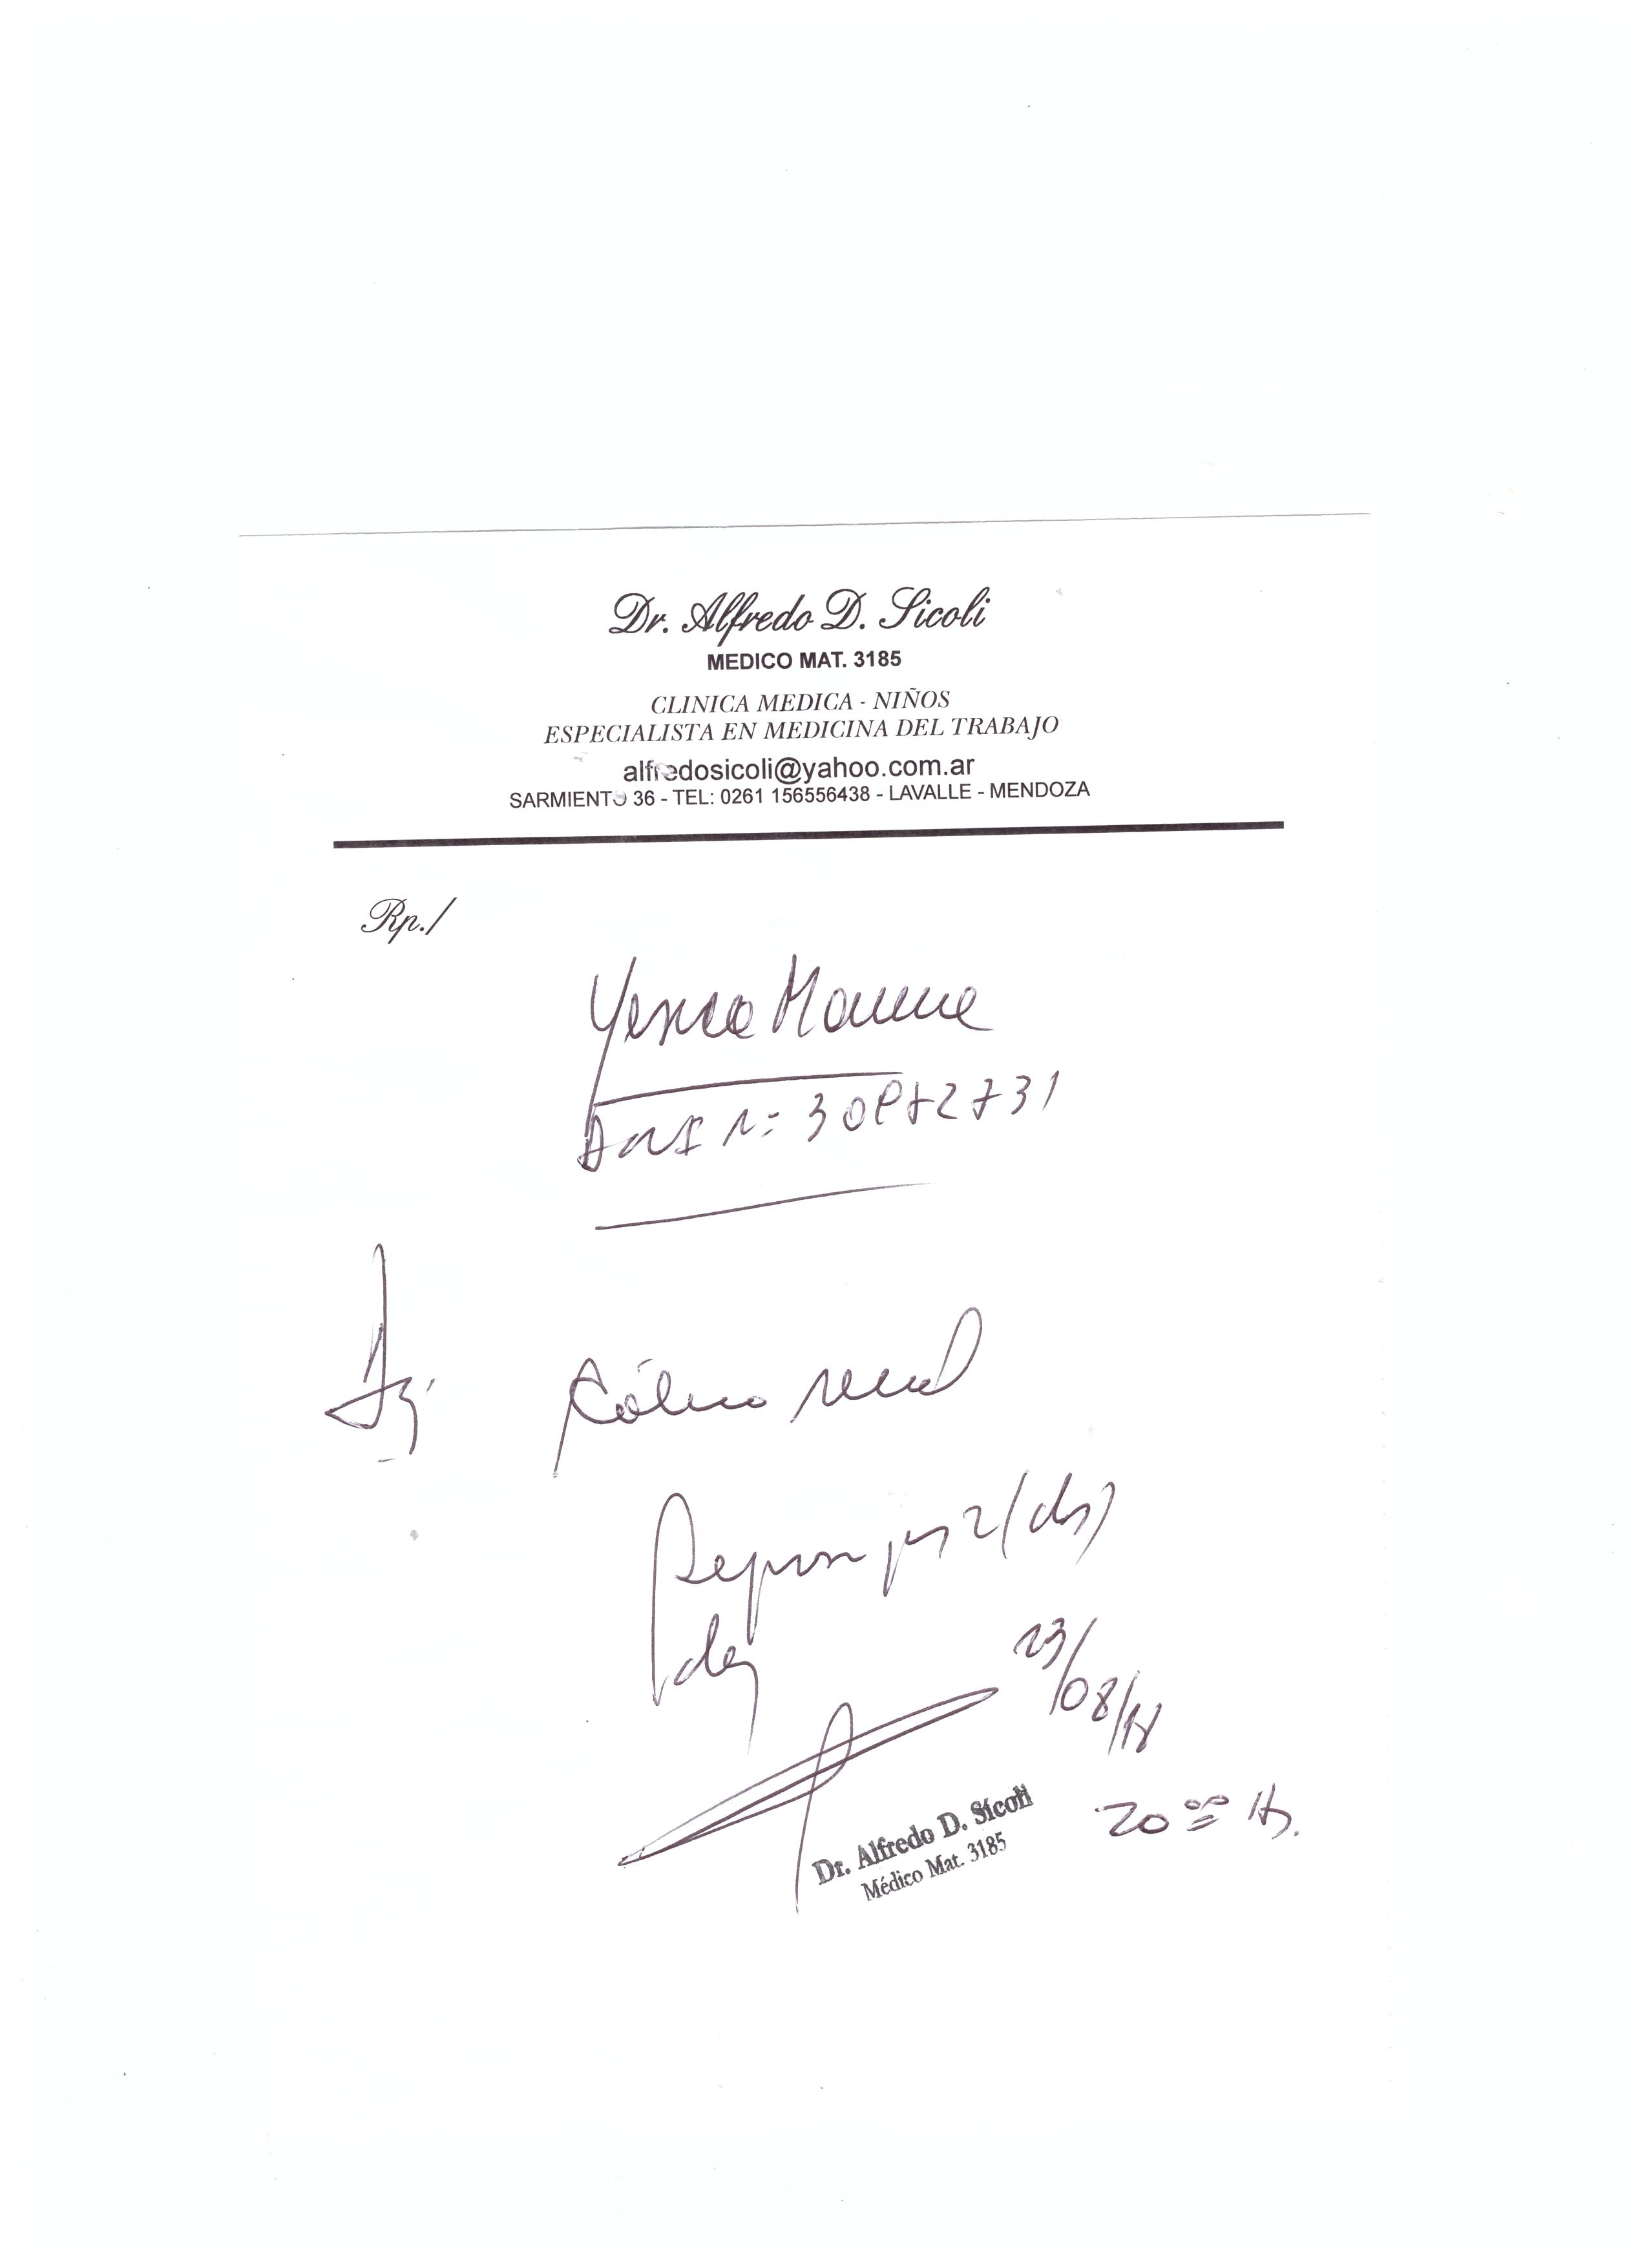 Dr. Alfredo D. Sicoli
MEDICO MAT. 3185
CLINICA MEDICA - NIÑOS
ESPECIALISTA EN MEDICINA DEL TRABAJO
alfredosicoli@yahoo.com.ar
SARMIENTO 36 - TEL: 0261 156556438 - LAVALLE - MENDOZA
Rp./
DNI N:
Cólico renal
Reposo por 2 (dos)
días
23/08/
20 00 Hs.
Dr. Alfredo D. Sicoli
Médico Mat. 3185